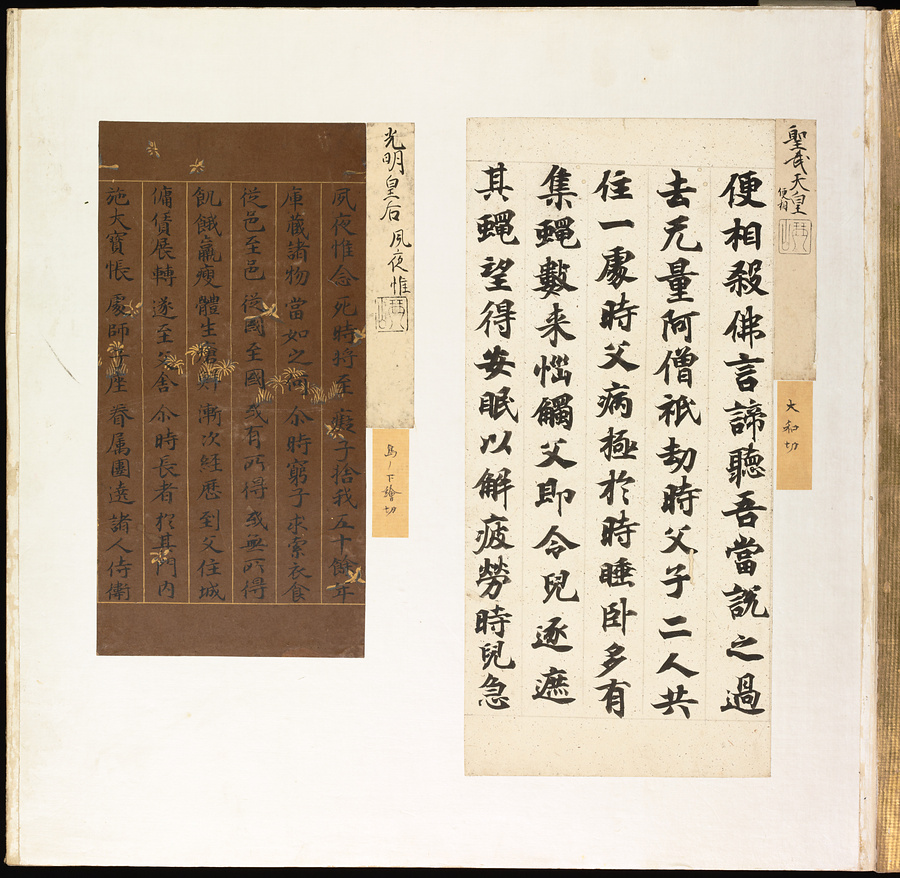 聖武天皇
便相
大和切
便相殺佛言諦聽吾當説之過
去无量阿僧祇劫時父子二人共
住一處時父病極於時睡卧多有
集蠅數来惱觸父即令兒逐遮
其蠅望得安眠以解疲勞時兒急
光明皇后 夙夜惟
鳥ノ下繪切
夙夜惟念死時將至癡子捨我五十餘年
庫藏諸物當如之何尒時窮子求索衣食
從邑至邑從國至國或有所得或無所得
飢餓羸瘦體生瘡癬漸次經歷到父住城
傭賃展轉遂至父舍尒時長者於其門内
施大寶帳處師子座眷属圍遶諸人侍衛